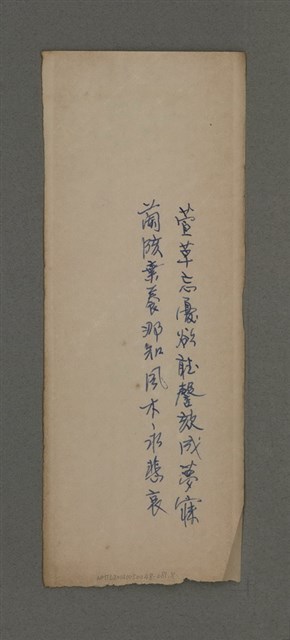 萱草忘憂欲聽聲欬成夢寐
蘭陔棄養那知風木永悲哀